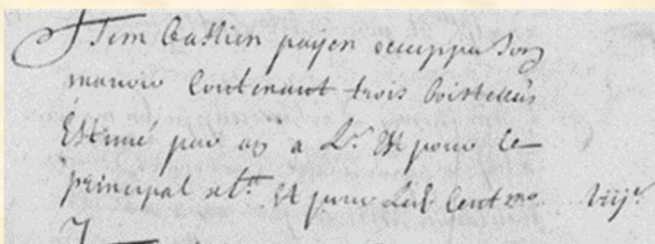 Item Bastien payen occuppa son
manoir Contenant trois boistellés
Estimé par an a L s. Et pour le
principal Et pour led. Cent me viij s